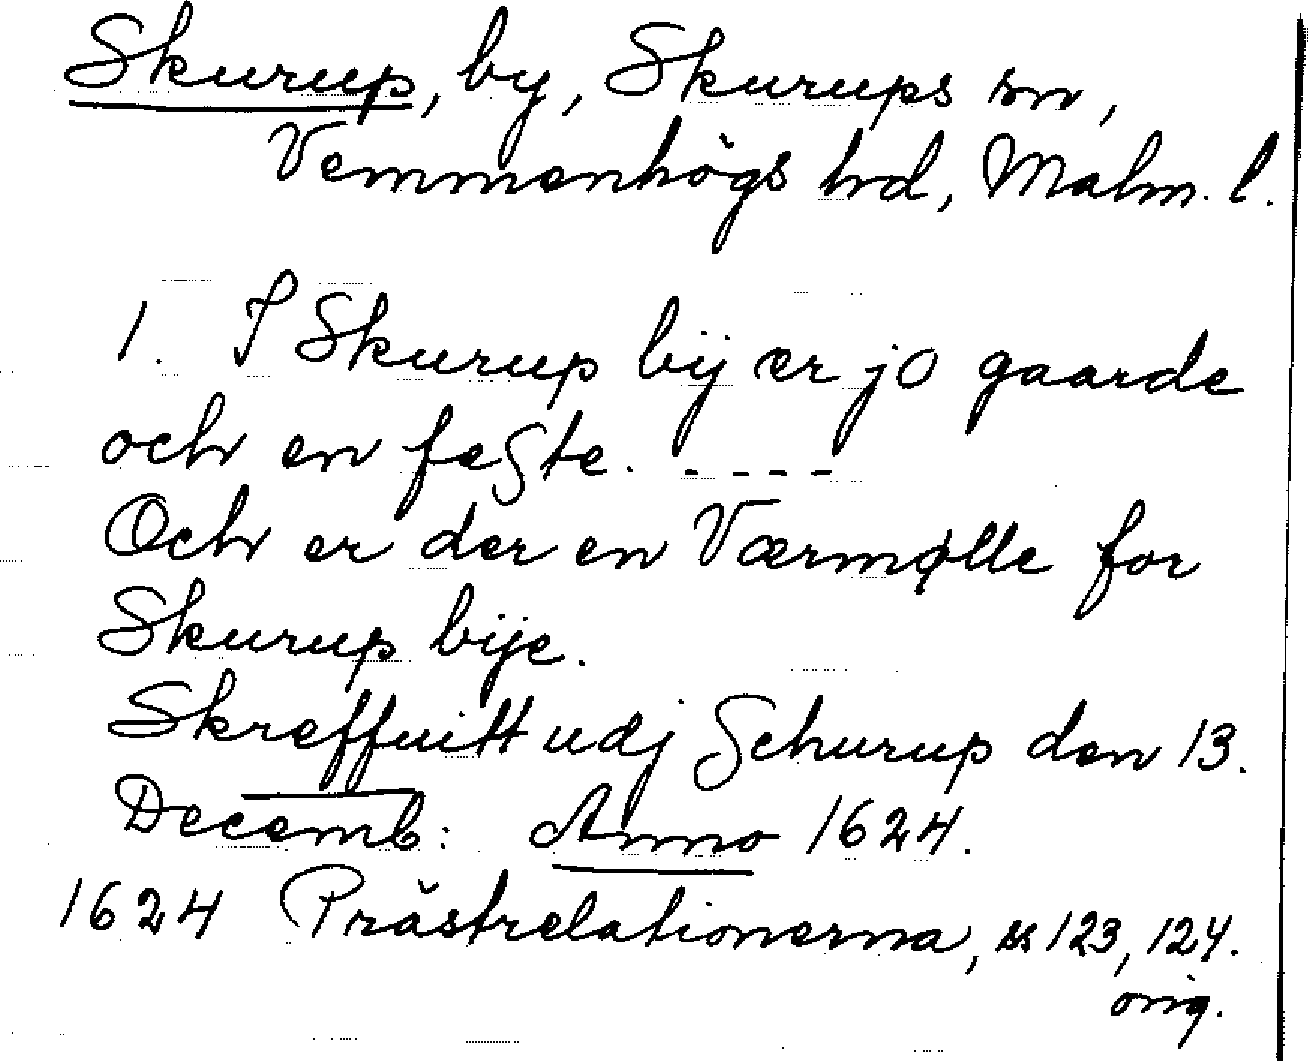 Skurup, by, Skurups sn,
Vemmenhögs hd, Malm. l.
1. I Skurup bij er jo gaarde
och en feste. - - - -
Och er der en Værmølle for
Skurup bije.
Skreffuitt udj Schurup den 13.
Decemb: Anno 1624.
1624 Prästrelationerna, ss 123, 124.
orig.